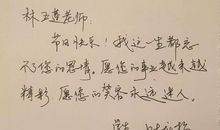 林玉莲老师：
节日快乐！我这一生都忘
不了您的恩情。愿您的事业越来越
精彩 愿您的笑容永远迷人。
学生